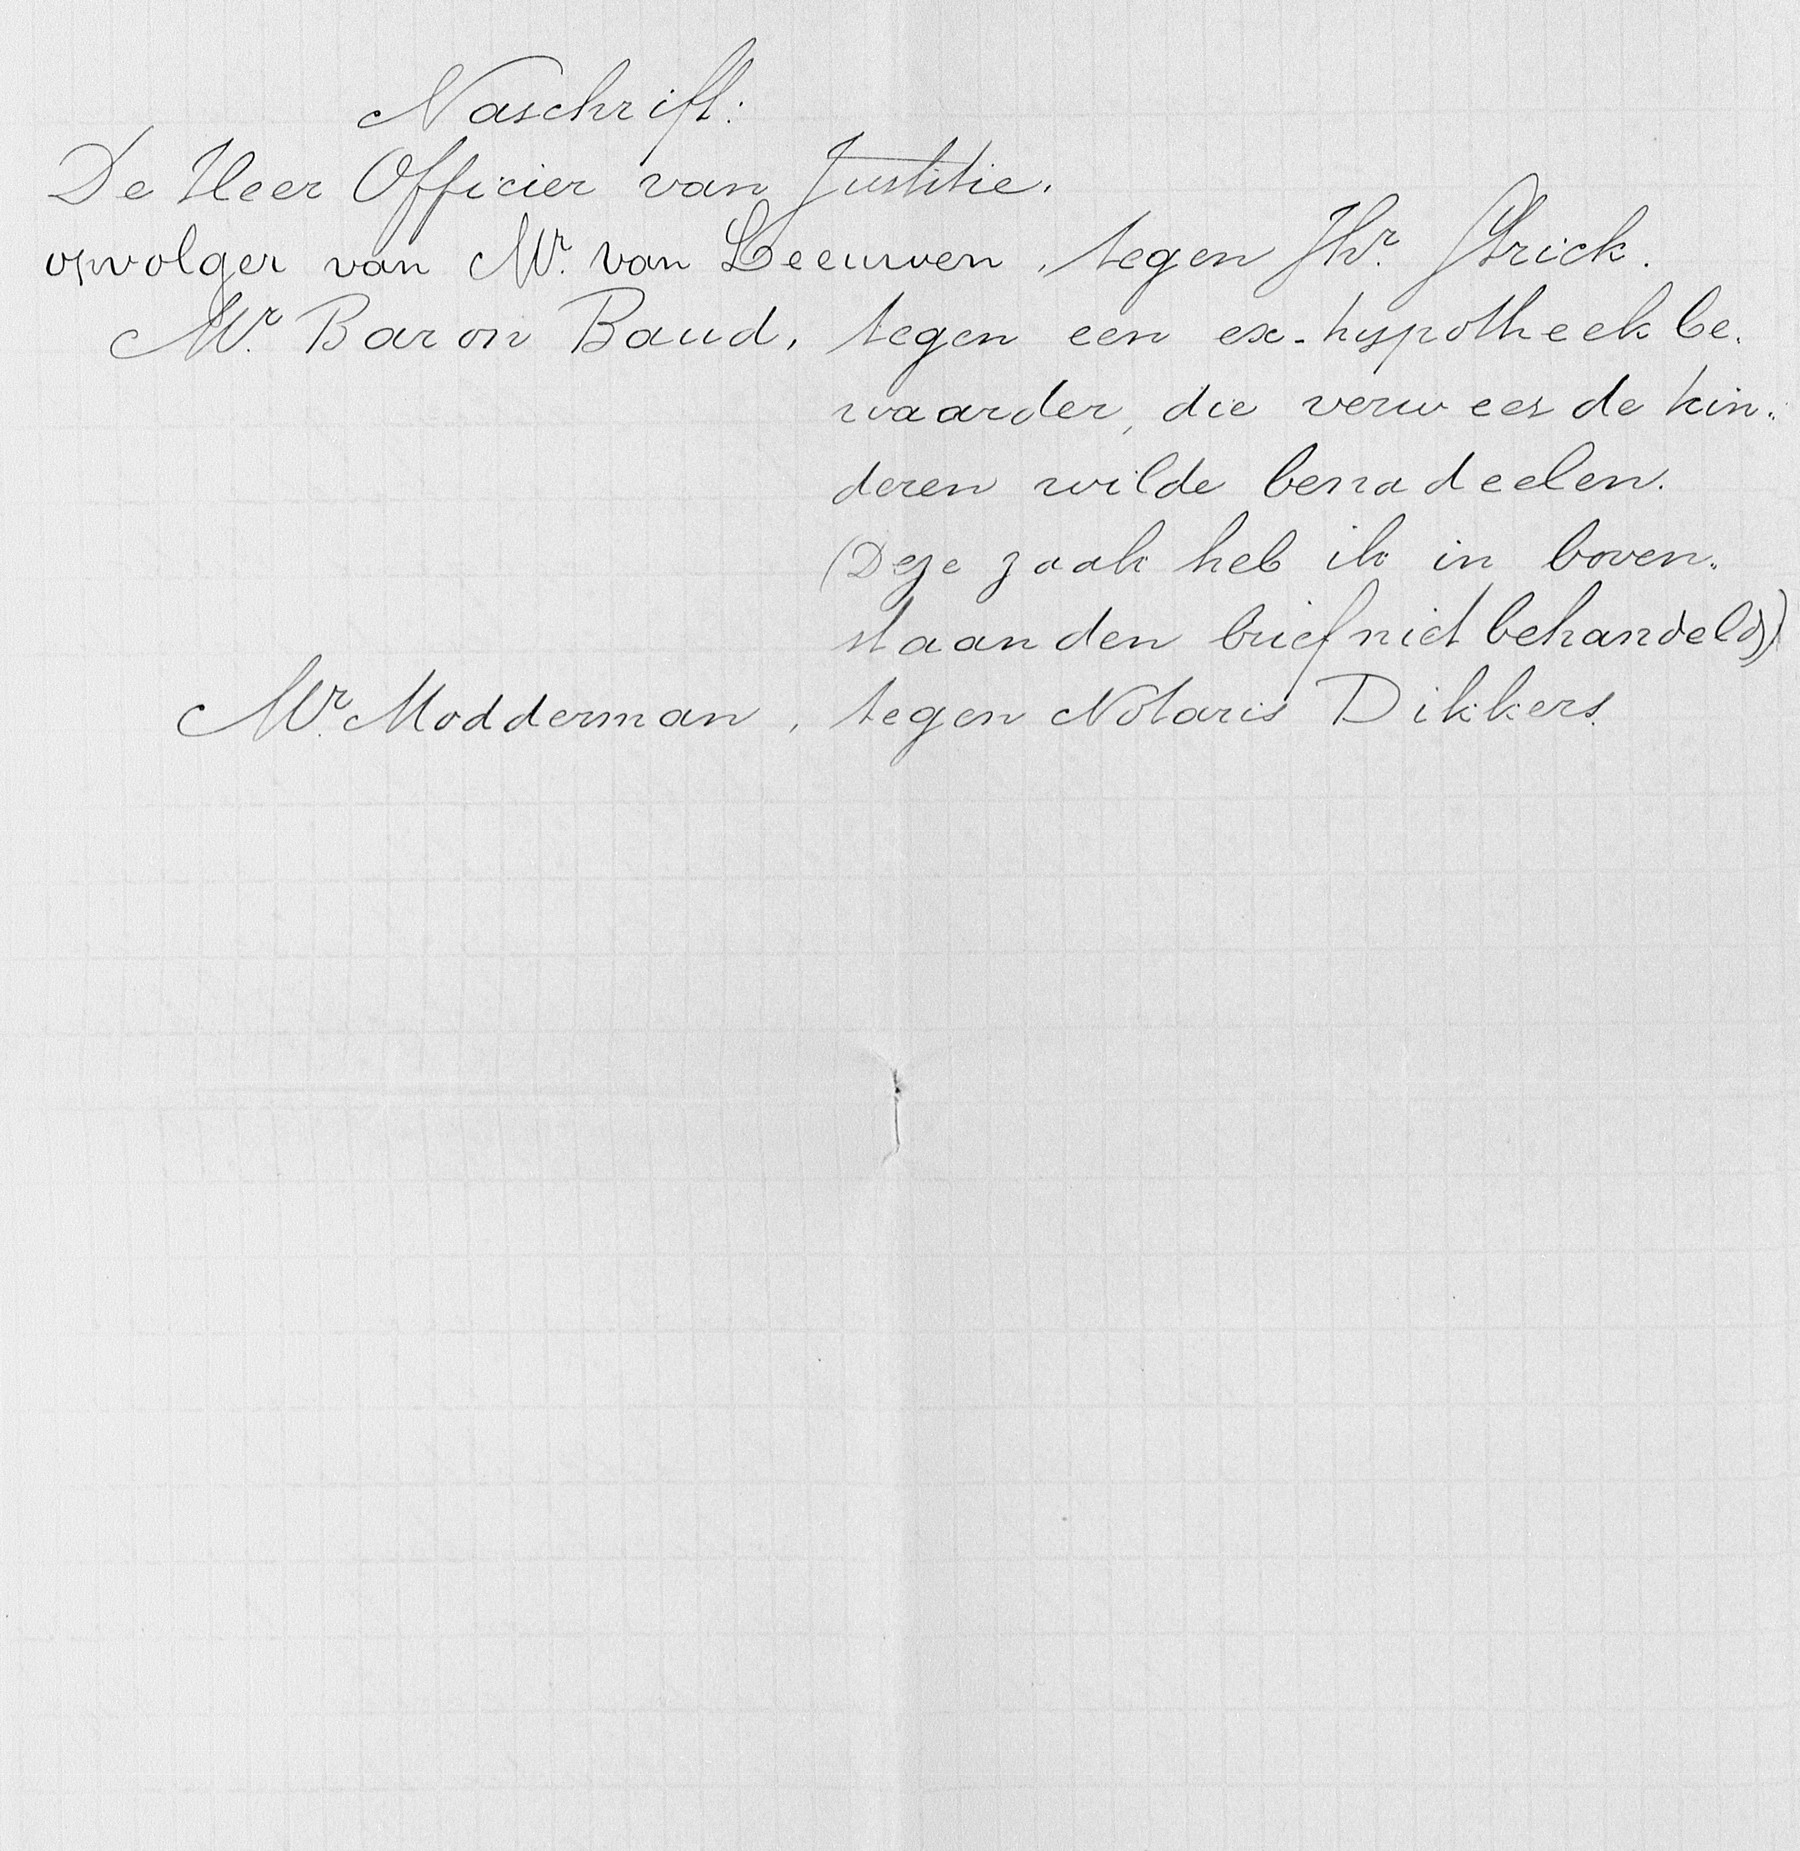 Naschrift:
De Heer Officier van Justitie.
opvolger van Mr. van Leeuwen, tegen Jhr. Strick.
Mr. Baron Baud, tegen een ex-hypotheekbe-
waarder, die verweesde kin-
deren wilde benadeelen.
(Deze zaak heb ik in boven-
staanden brief niet behandeld)
Mr. Modderman, tegen Notaris Dikkers.